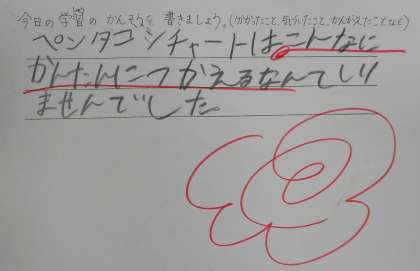 今日の学習のかんそうを書きましょう。(わかったこと、気づいたこと、かんがえたことなど)
ペンタゴンチャートはこんなに
かんたんにつかえるなんてしり
ませんでした